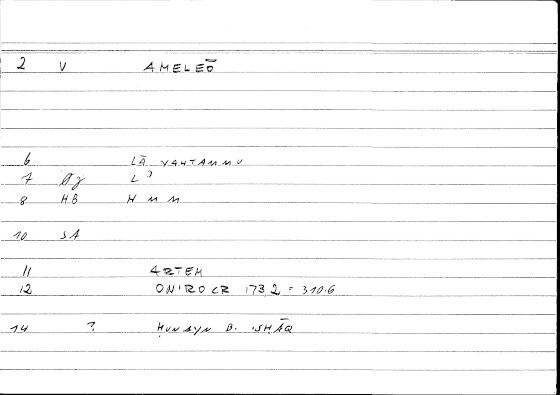 2 V AMELEŌ
6 LĀ YAHTAMMU
7 Øγ L ʾ
8 HB H M M
10 SA
11 ARTEM
12 ONIROCR 173,2 = 310.6
14 ? ḤUNAYN B. ISḤĀQ